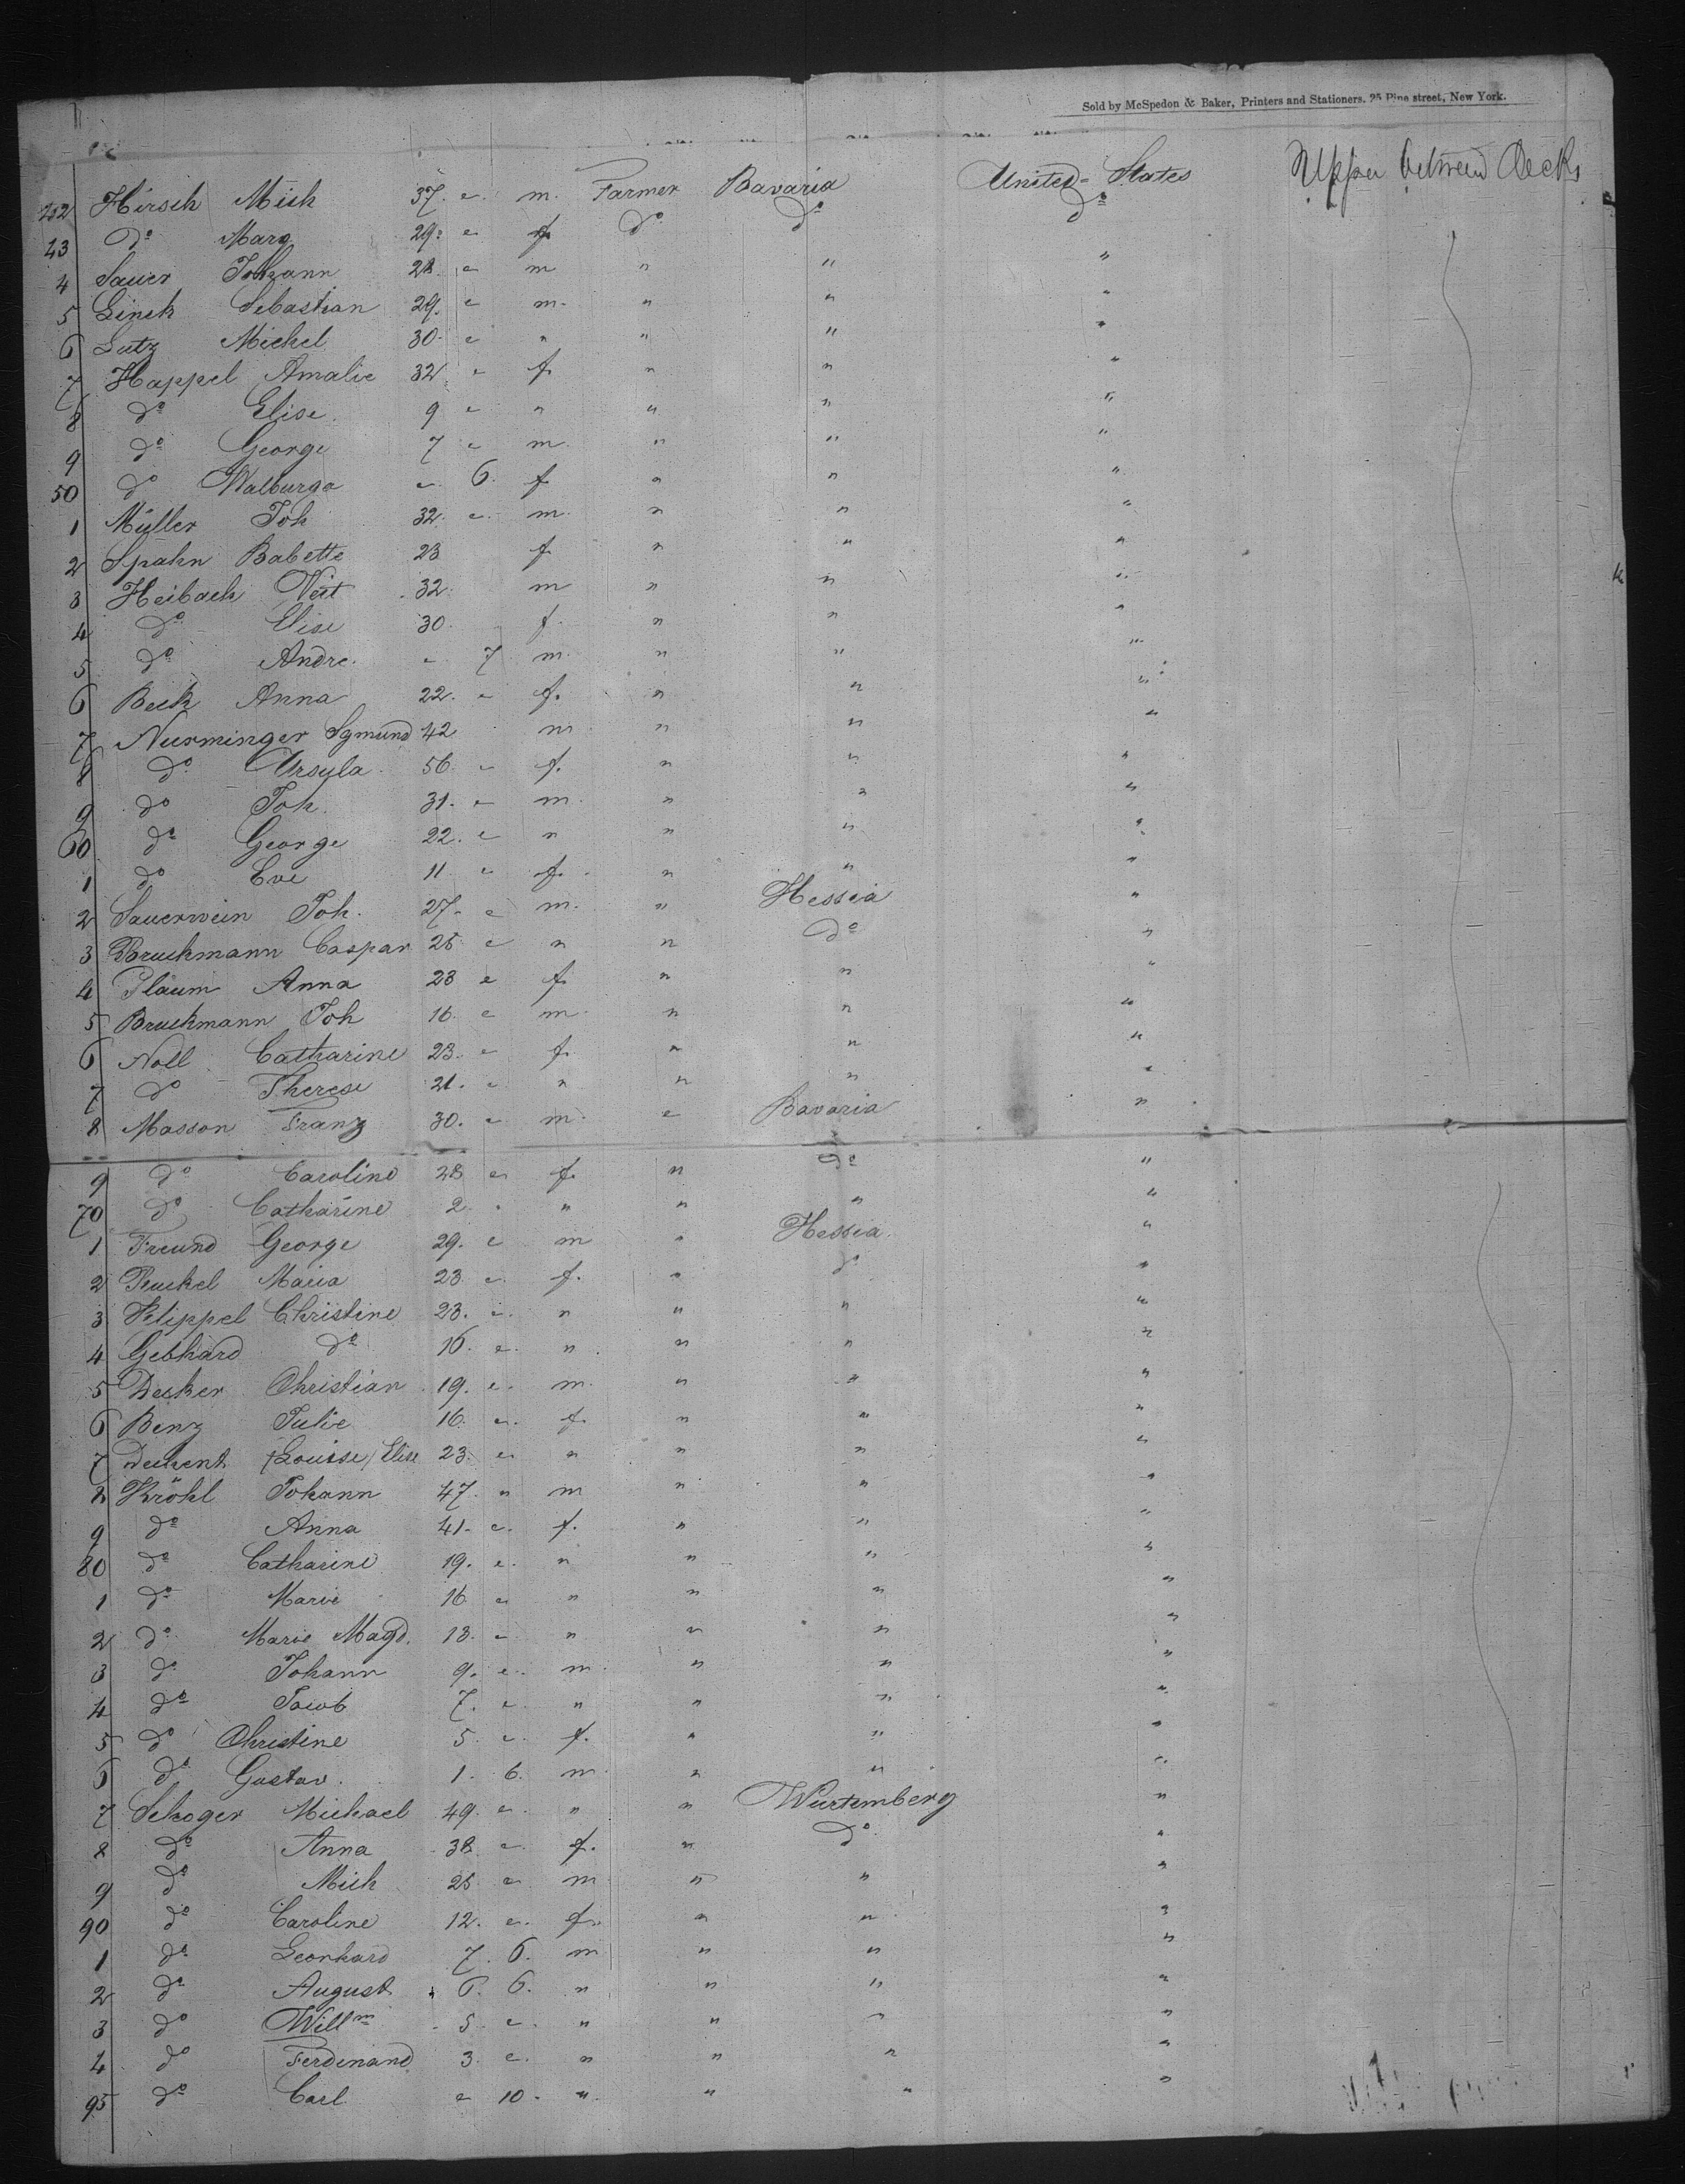 Sold by McSpedon & Baker, Printers and Stationers, 25 Pine street, New York.
242 Hirsch Mich 37. " m. Farmer Bavaria United States Upper between Decks
43 do Marg 29. " f. do do do
4 Sauer Johann 28. " m " " "
5 Linck Sebastian 29. " m. " " "
6 Lutz Michel 30. " " " " "
7 Happel Amalie 32 " f. " " "
8 do Elise 9 " " " " "
9 do George 7 " m. " " "
50 do Walburga " 6. f " " "
1 Müller Joh 32. " m. " " "
2 Spahn Babette 23 f. " " "
3 Heibach Veit 32. m " " "
4 do Elise 30. f. " " "
5 do Andre. " 7 m. " " "
6 Beck Anna 22. " f. " " "
7 Nurminger Sgmund 42 m " " "
8 do Ursula 56. " f. " " "
9 do Joh. 31. " m. " " "
60 do George 22. " " " " "
1 do Eve 11 " f. " " "
2 Sauerwein Joh. 27. " m. " Hessia "
3 Bruckmann Caspar 25 " " " do "
4 Plaum Anna 23 " f. " " "
5 Bruckmann Joh 16. " m. " " "
6 Noll Catharine 23. " f. " " "
7 do Therese 21. " " " " "
8 Masson Franz 30. " m " Bavaria "
9 do Caroline 28 " f. " do "
70 do Catharine 2 " " " " "
1 Freund George 29. " m " Hessia "
2 Ruckel Maria 23. " f. " do "
3 Klippel Christine 23. " " " " "
4 Gebhard do 16. " " " " "
5 Decker Christian 19. " m. " " "
6 Benz Julie 16. " f. " " "
7 Dechent /Louise/ Elise 23. " " " " "
8 Kröhl Johann 47. " m " " "
9 do Anna 41. " f. " " "
80 do Catharine 19. " " " " "
1 do Marie 16 " " " " "
2 do Marie Magd. 13. " " " " "
3 do Johann 9. " m. " " "
4 do Jacob 7. " " " " "
5 do Christine 5. " f. " " "
6 do Gustav. 1. 6. m. " " "
7 Schoger Michael 49. " " " Wurtemberg "
8 do Anna 38. " f. " do "
9 do Mich 25 " m " " "
90 do Caroline 12. " f. " " "
1 do Leonhard 7. 6. m " " "
2 do August 6. 6. " " " "
3 do Willm 5 " " " " "
4 do Ferdinand 3. " " " " "
95 do Carl " 10. " " " "